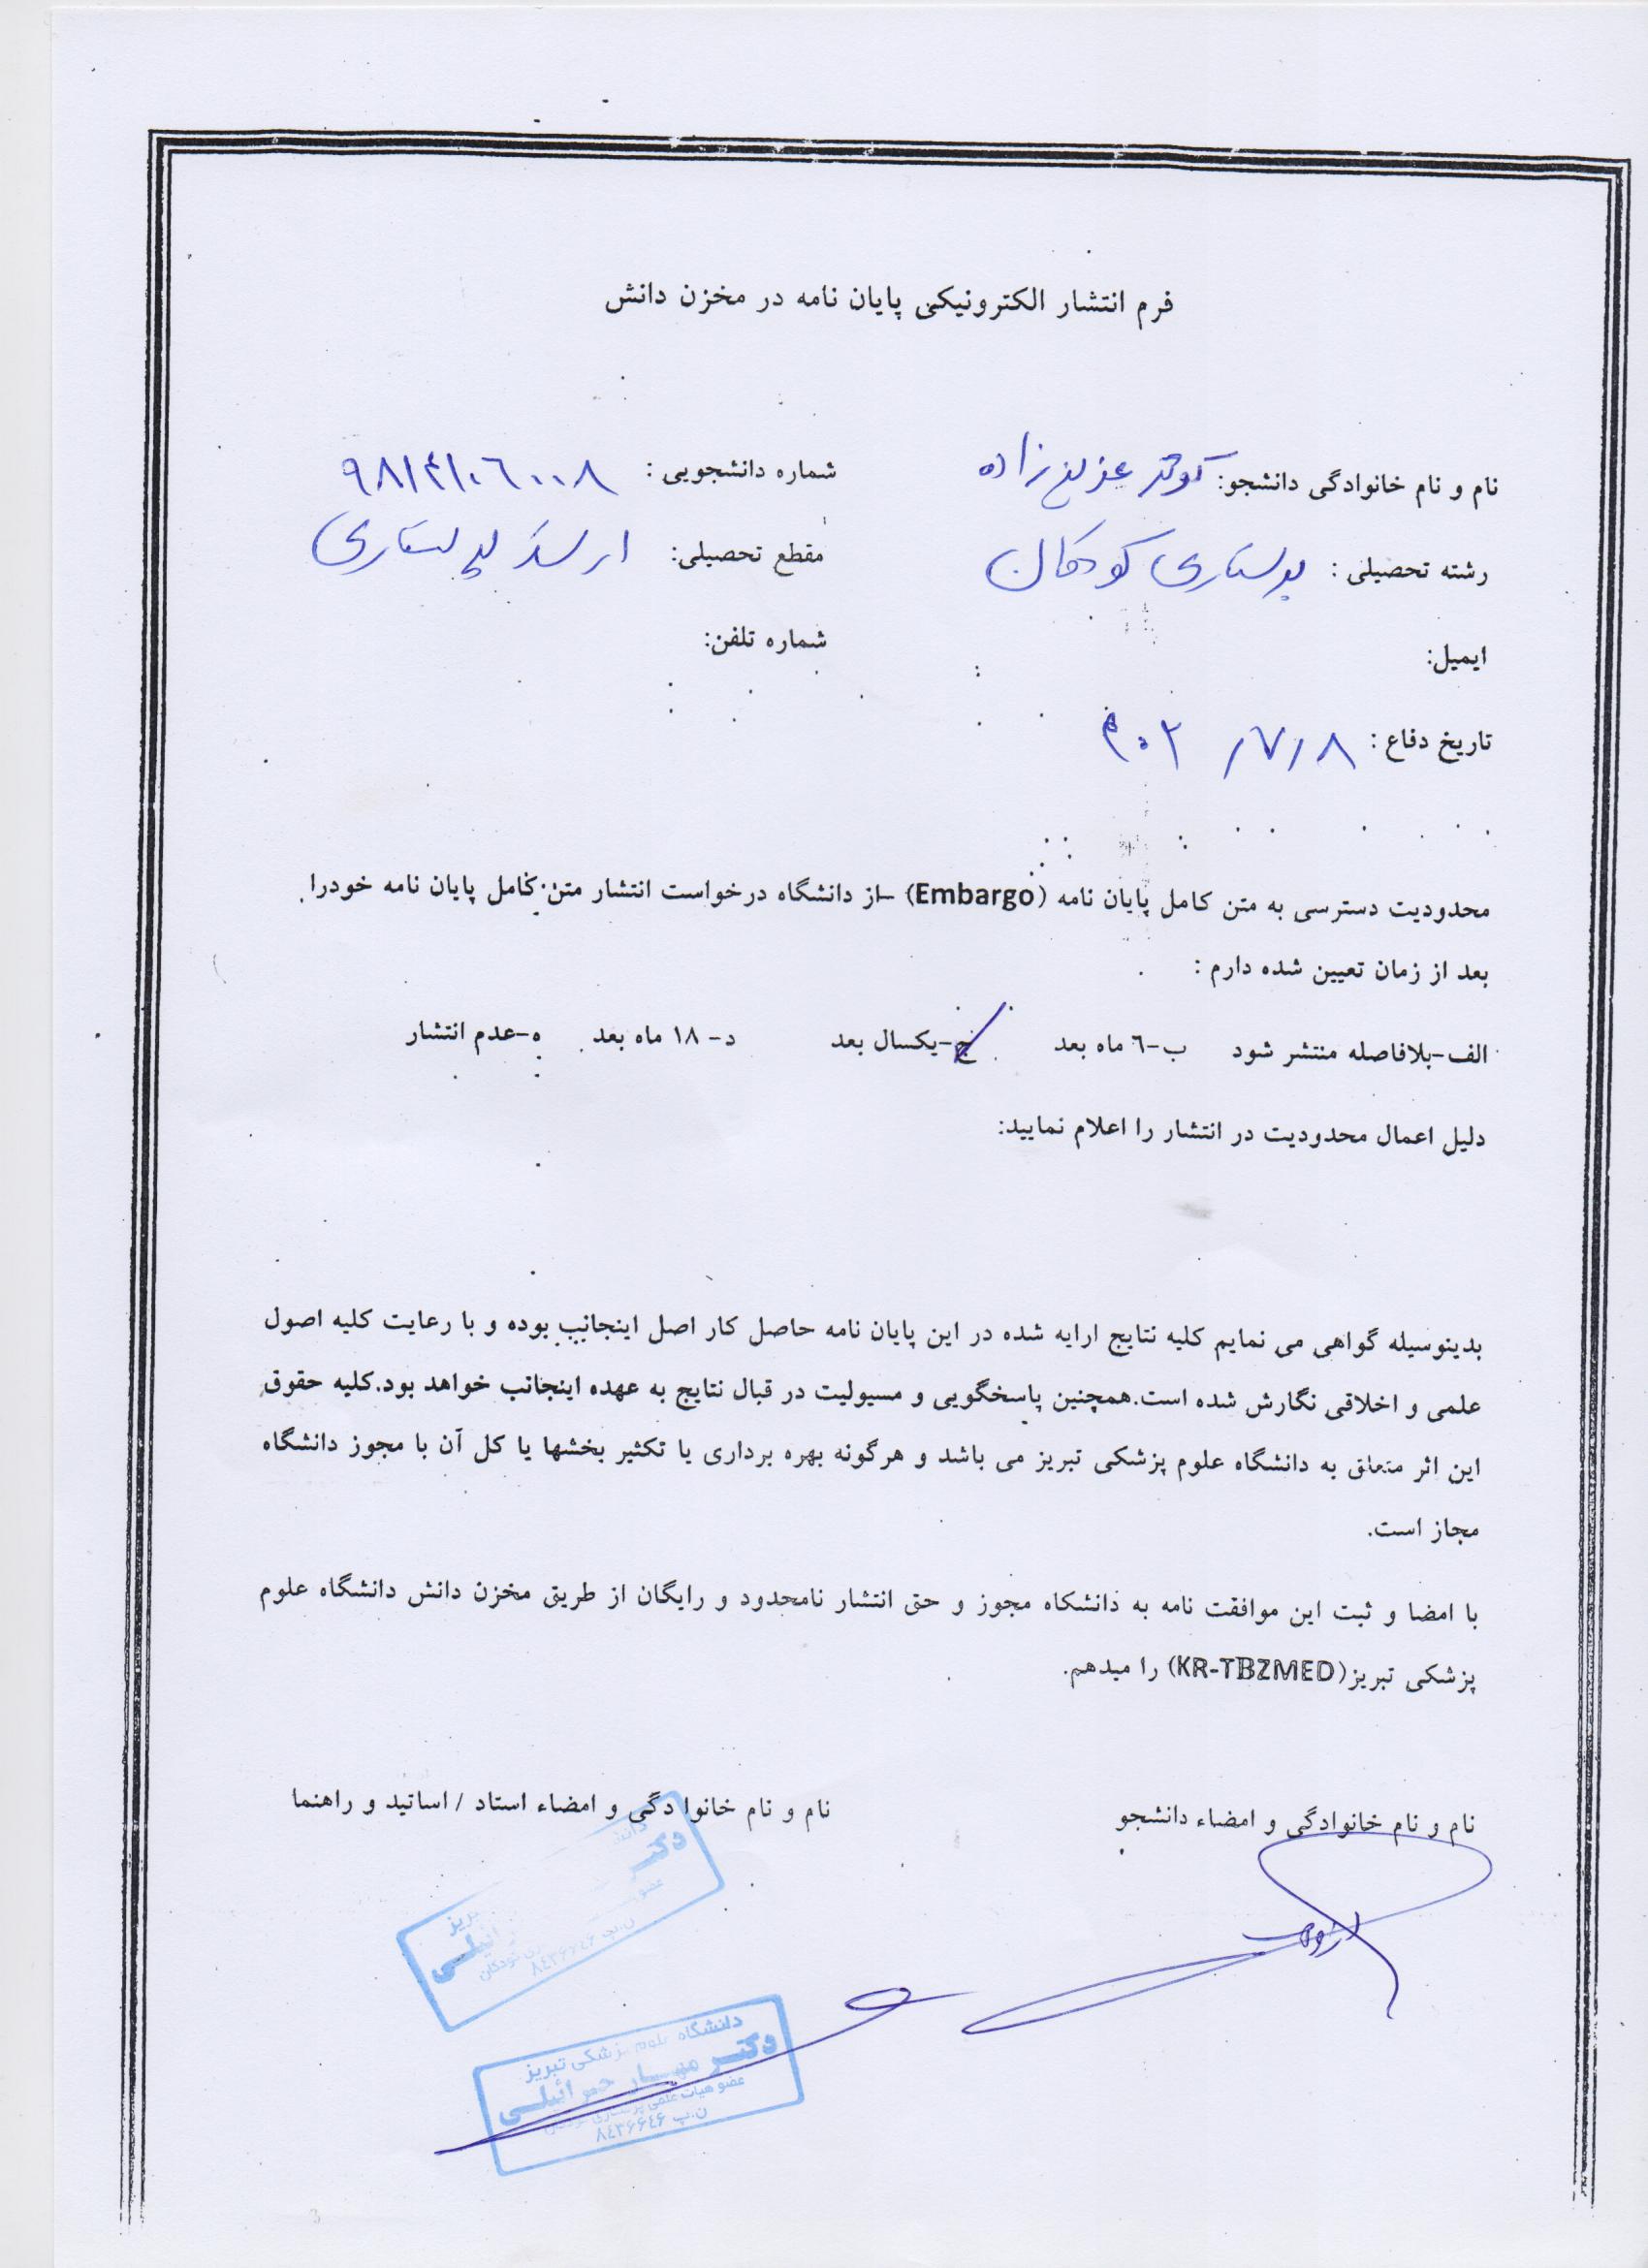 فرم انتشار الکترونیکی پایان نامه در مخزن دانش
نام و نام خانوادگی دانشجو: کوثر عزیززاده شماره دانشجویی : ۹۸۱۴۱۰۶۰۰۸
رشته تحصیلی : پرستاری کودکان مقطع تحصیلی: ارشد پرستاری
ایمیل: شماره تلفن:
تاریخ دفاع : ۸ / ۷ /
محدودیت دسترسی به متن کامل پایان نامه (Embargo) –از دانشگاه درخواست انتشار متن کامل پایان نامه خودرا
بعد از زمان تعیین شده دارم :
الف-بلافاصله منتشر شود ب-٦ ماه بعد ج-یکسال بعد د- ۱۸ ماه بعد ه-عدم انتشار
دلیل اعمال محدودیت در انتشار را اعلام نمایید:
بدینوسیله گواهی می نمایم کلیه نتایج ارایه شده در این پایان نامه حاصل کار اصل اینجانب بوده و با رعایت کلیه اصول
علمی و اخلاقی نگارش شده است.همچنین پاسخگویی و مسیولیت در قبال نتایج به عهده اینجانب خواهد بود.کلیه حقوق
این اثر متعلق به دانشگاه علوم پزشکی تبریز می باشد و هرگونه بهره برداری یا تکثیر بخشها یا کل آن با مجوز دانشگاه
مجاز است.
با امضا و ثبت این موافقت نامه به دانشکاه مجوز و حق انتشار نامحدود و رایگان از طریق مخزن دانش دانشگاه علوم
پزشکی تبریز(KR-TBZMED) را میدهم.
نام و نام خانوادگی و امضاء دانشجو نام و نام خانوادگی و امضاء استاد / اساتید و راهنما
دکتر
دانشگاه علوم پزشکی تبریز
دکتر مهناز جبرائیلی
عضو هیات علمی پرستاری کودکان
ن.پ ۸٤۳۶۶٤۶